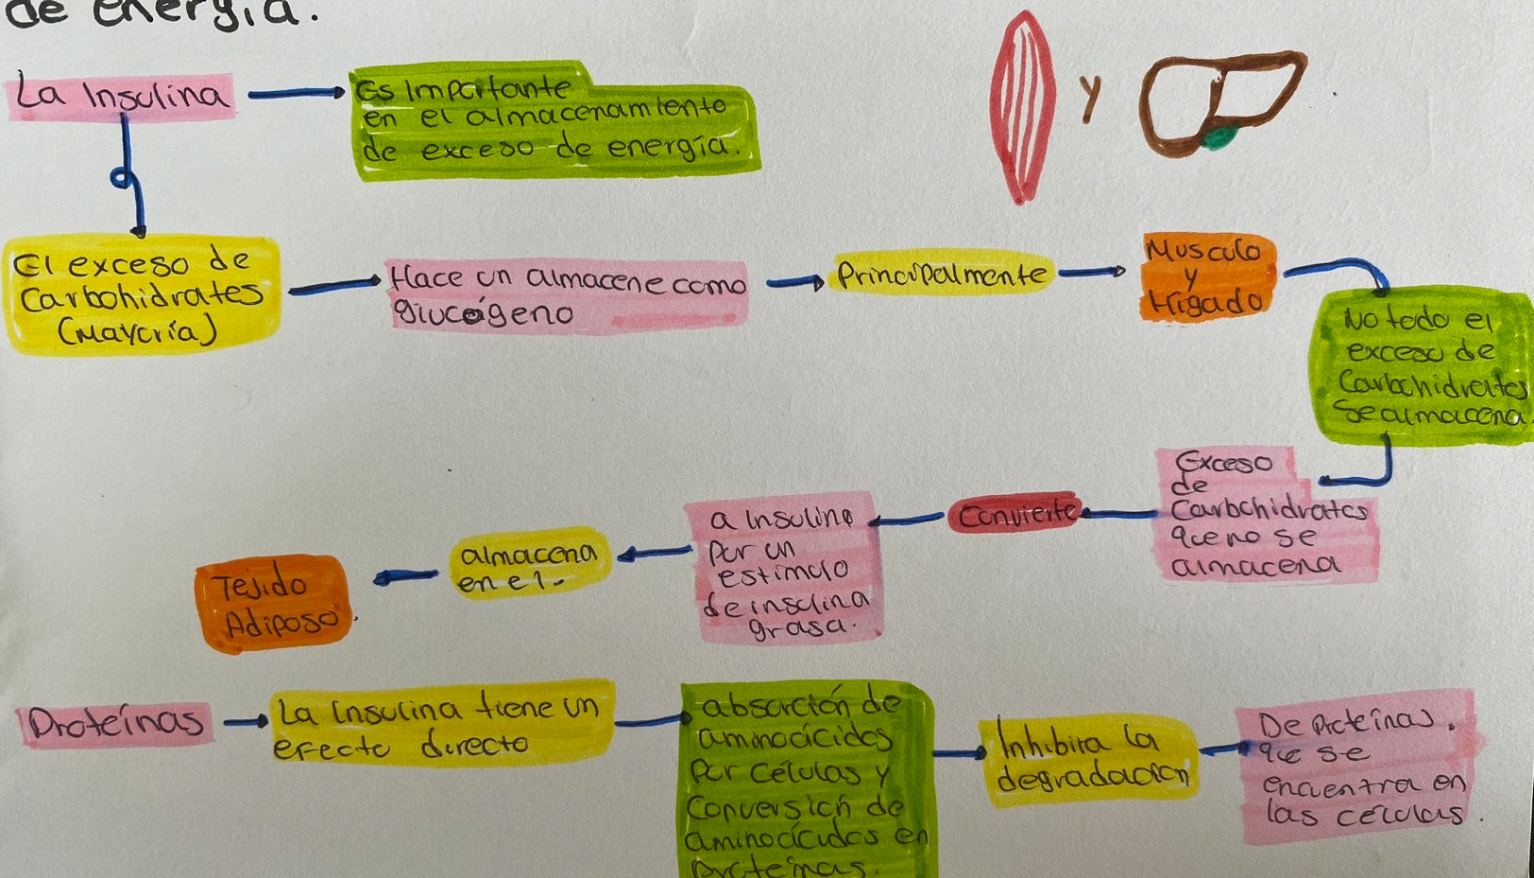 de energía.
La Insulina
Es Importante
en el almacenamiento
de exceso de energía.
y
El exceso de
Carbohidratos
(Mayoría)
Hace un almacene como
glucógeno
Principalmente
Musculo
y
Hígado
No todo el
exceso de
Carbohidratos
se almacena.
Exceso
de
Carbohidratos
que no se
almacena
Convierte
a Insulina
por un
estimulo
de insulina
grasa.
almacena
en el-
Tejido
Adiposo.
Proteínas
La insulina tiene un
efecto directo
absorción de
aminoácidos
por células y
Conversión de
aminoácidos en
proteínas.
Inhibira la
degradación
De Proteínas.
que se
encuentra en
las células.